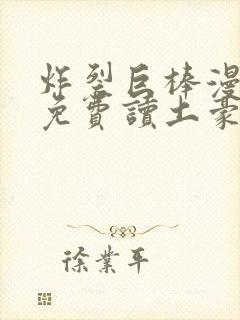 炸裂巨棒漫
免費讀土豪
徐業平